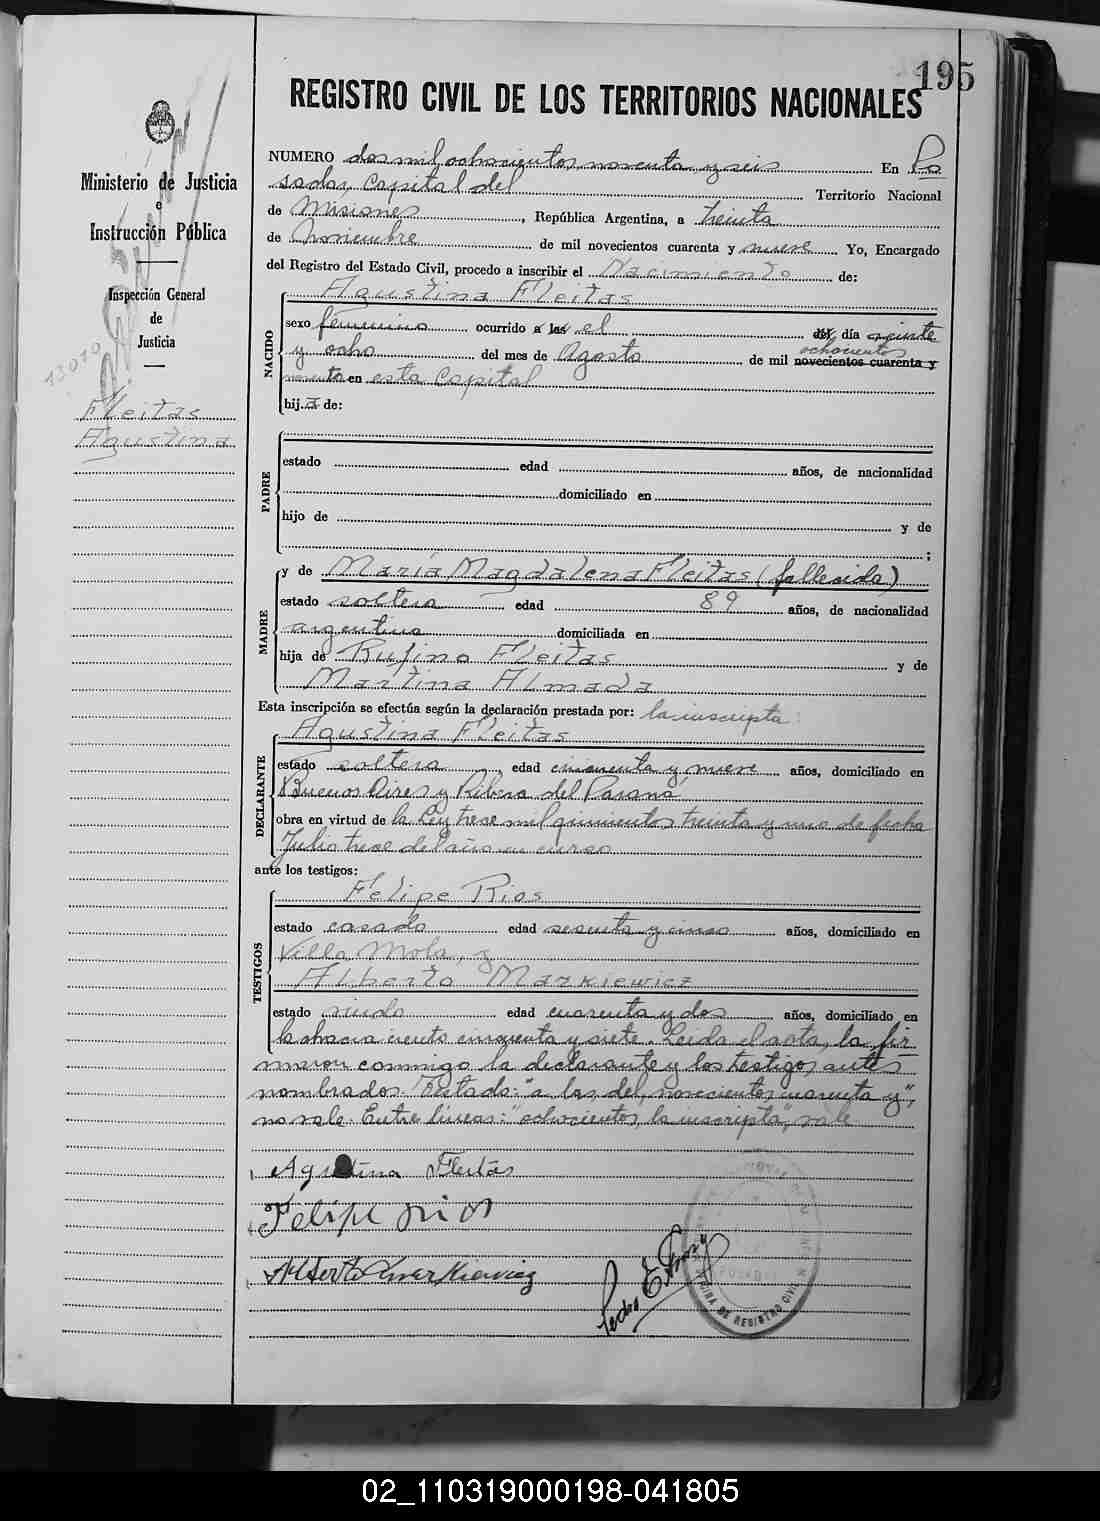 195
REGISTRO CIVIL DE LOS TERRITORIOS NACIONALES
Ministerio de Justicia
e
Instrucción Pública
Inspección General
de
Justicia
13070
Fleitas
Agustina
NUMERO dos mil ochocientos noventa y seis En Po
sadas, Capital del Territorio Nacional
de Misiones, República Argentina, a treinta
de Noviembre de mil novecientos cuarenta y nueve Yo, Encargado
del Registro del Estado Civil, procedo a inscribir el Nacimiento de:
Agustina Fleitas
NACIDO
sexo femenino ocurrido a las el del día veinte
y ocho del mes de Agosto de mil ochocientos novecientos cuarenta y
noventa en esta Capital
hija de:
PADRE
estado edad años, de nacionalidad
domiciliado en
hijo de y de
;
MADRE
y de María Magdalena Fleitas (fallecida)
estado soltera edad 89 años, de nacionalidad
argentina domiciliada en
hija de Rufino Fleitas y de
Martina Almada
Esta inscripción se efectúa según la declaración prestada por: la inscripta:
DECLARANTE
Agustina Fleitas
estado soltera, edad cincuenta y nueve años, domiciliado en
Buenos Aires y Ribera del Paraná
obra en virtud de la Ley trece mil quinientos treinta y uno de fecha
Julio trece del año en curso
ante los testigos:
TESTIGOS
Felipe Rios
estado casado edad sesenta y cinco años, domiciliado en
Villa Mola, y
Alberto Markiewicz
estado viudo edad cuarenta y dos años, domiciliado en
la chacra ciento cincuenta y siete. Leida el acta, la fir
maron conmigo la declarante y los testigos antes
nombrados. Testado: "a las, del, novecientos cuarenta y",
no vale. Entre lineas: "ochocientos, la inscripta", vale
Agustina Fleitas
Felipe Rios
Alberto Markiewicz
Pedro E.
OFICINA DE REGISTRO CIVIL
POSADAS
02_110319000198-041805